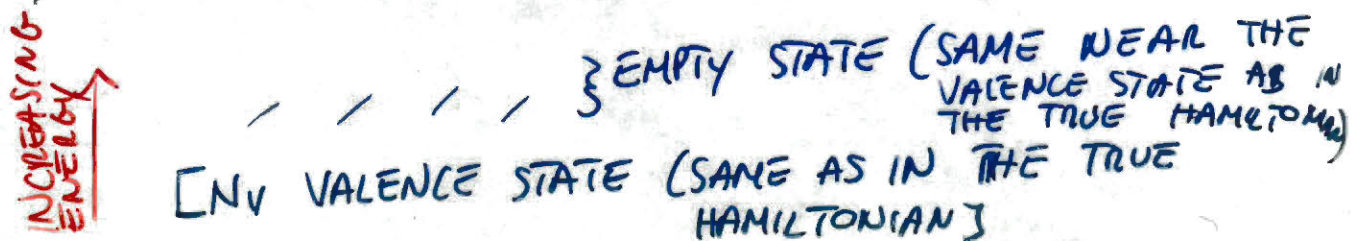 INCREASING
ENERGY
} EMPTY STATE (SAME NEAR THE
VALENCE STATE AS IN
THE TRUE HAMILTONIAN)
[NV VALENCE STATE (SAME AS IN THE TRUE
HAMILTONIAN]